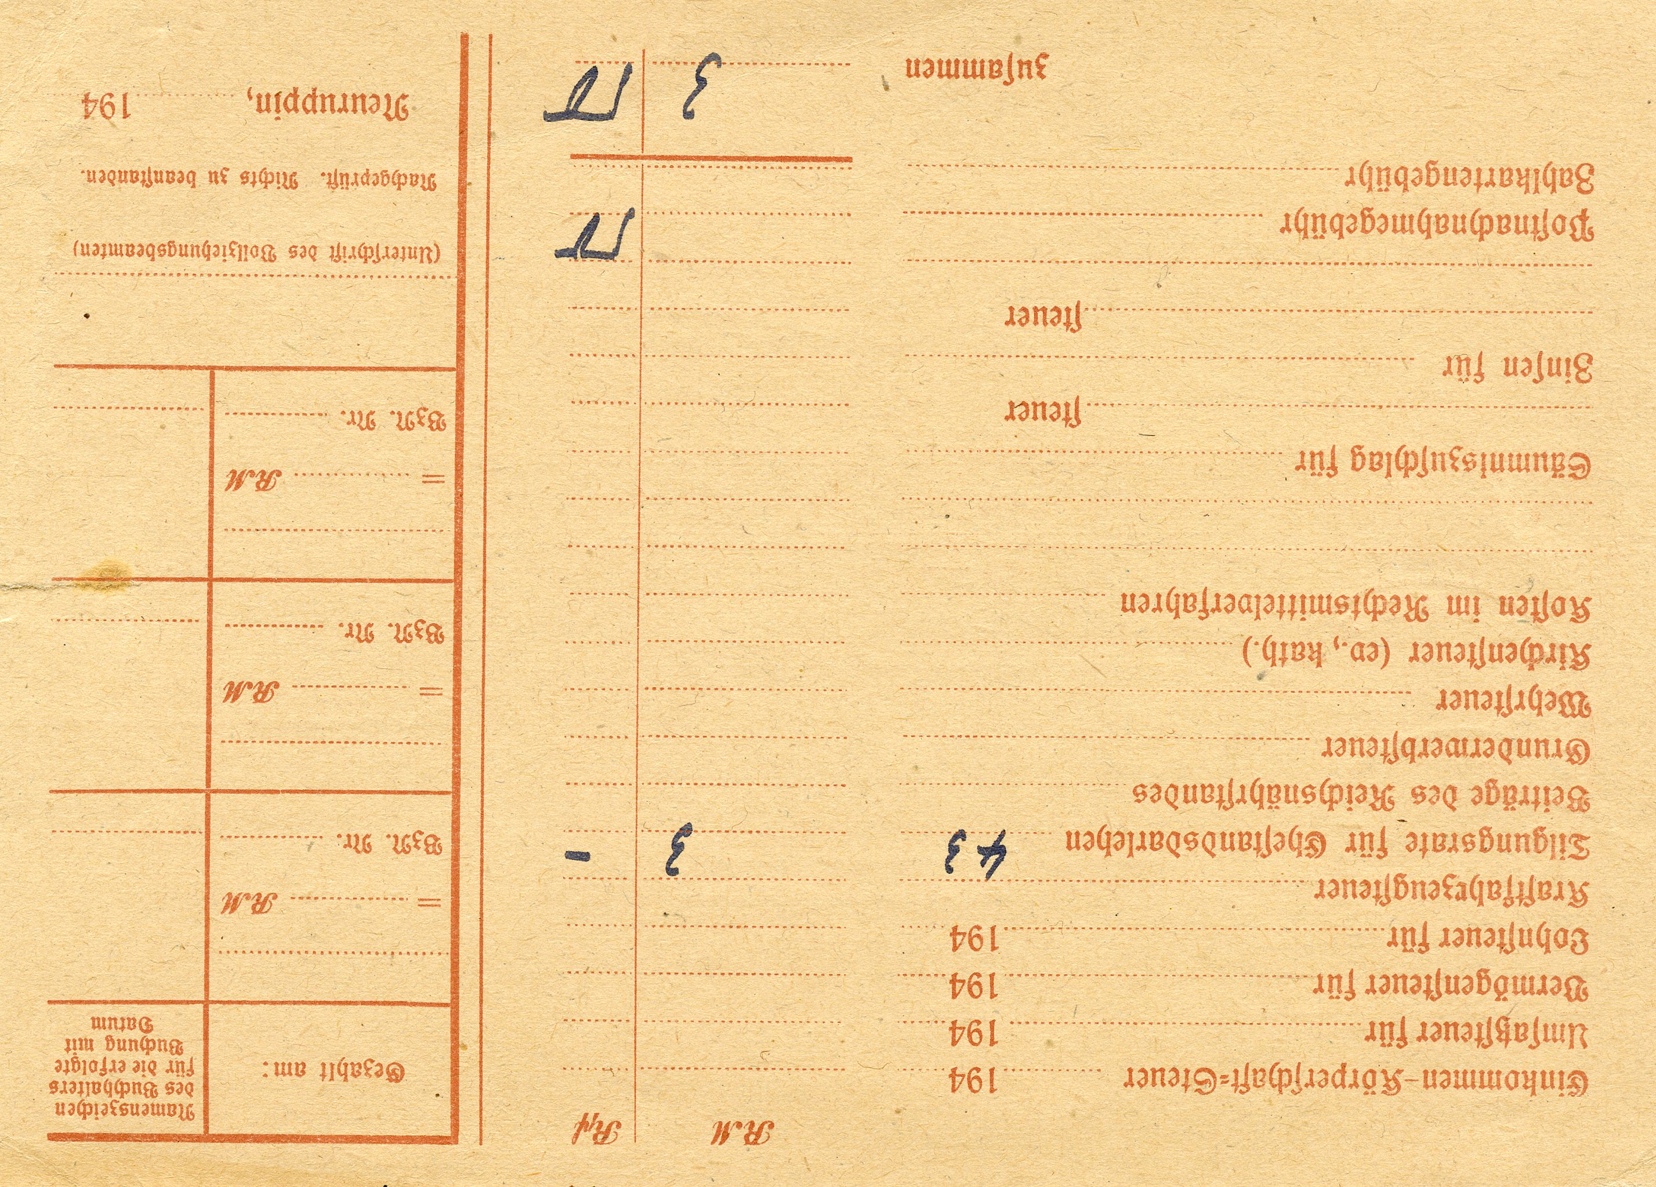 RM Rpf
Einkommen-Körperschaft=Steuer 194
Umsatzsteuer für 194
Vermögensteuer für 194
Lohnsteuer für 194
Kraftfahrzeugsteuer
Tilgungsrate für Ehestandsdarlehen 43 3 –
Beiträge des Reichsnährstandes
Grunderwerbsteuer
Wehrsteuer
Kirchensteuer (ev., kath.)
Kosten im Rechtsmittelverfahren
Säumniszuschlag für
steuer
Zinsen für
steuer
Postnachnahmegebühr
Zahlkartengebühr
zusammen 3
Gezahlt am:
Namenszeichen
des Buchhalters
für die erfolgte
Buchung mit
Datum
= RM
BzN. Nr.
= RM
BzN. Nr.
= RM
BzN. Nr.
(Unterschrift des Vollziehungsbeamten)
Nachgeprüft. Nichts zu beanstanden.
Neuruppin, 194